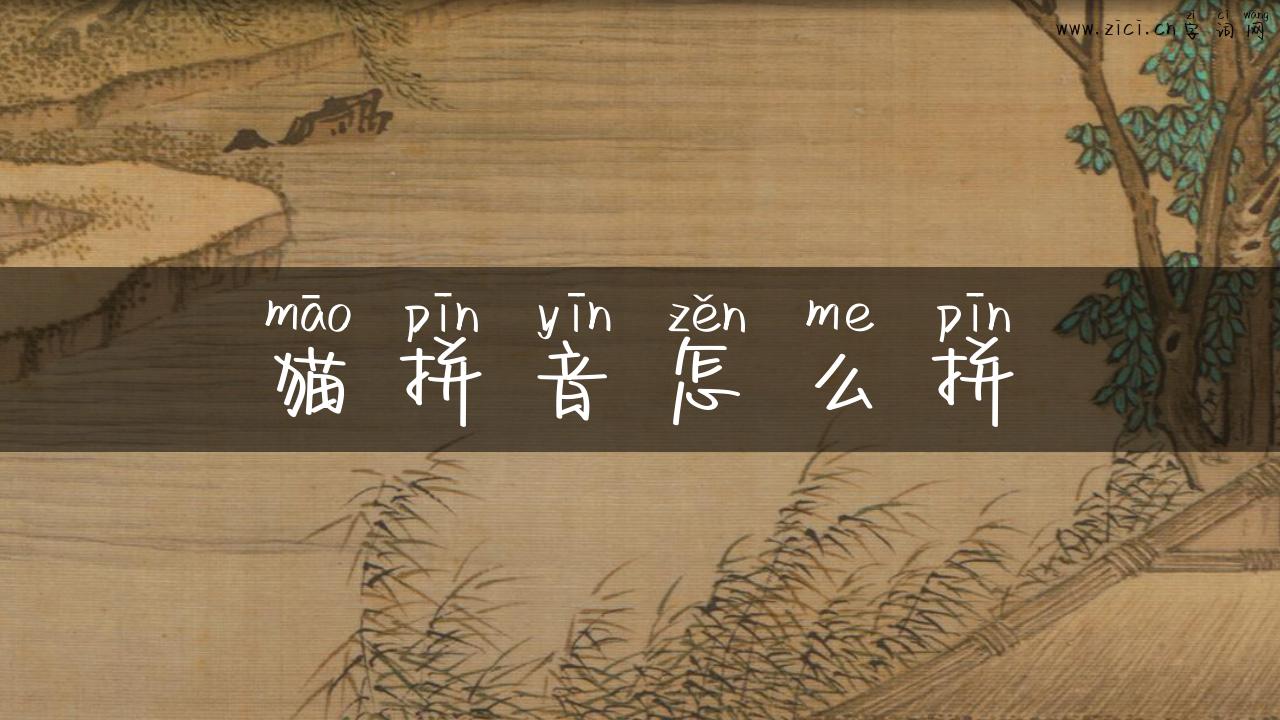 zì cí wǎng
www.zici.cn字词网
māo pīn yīn zěn me pīn
猫拼音怎么拼